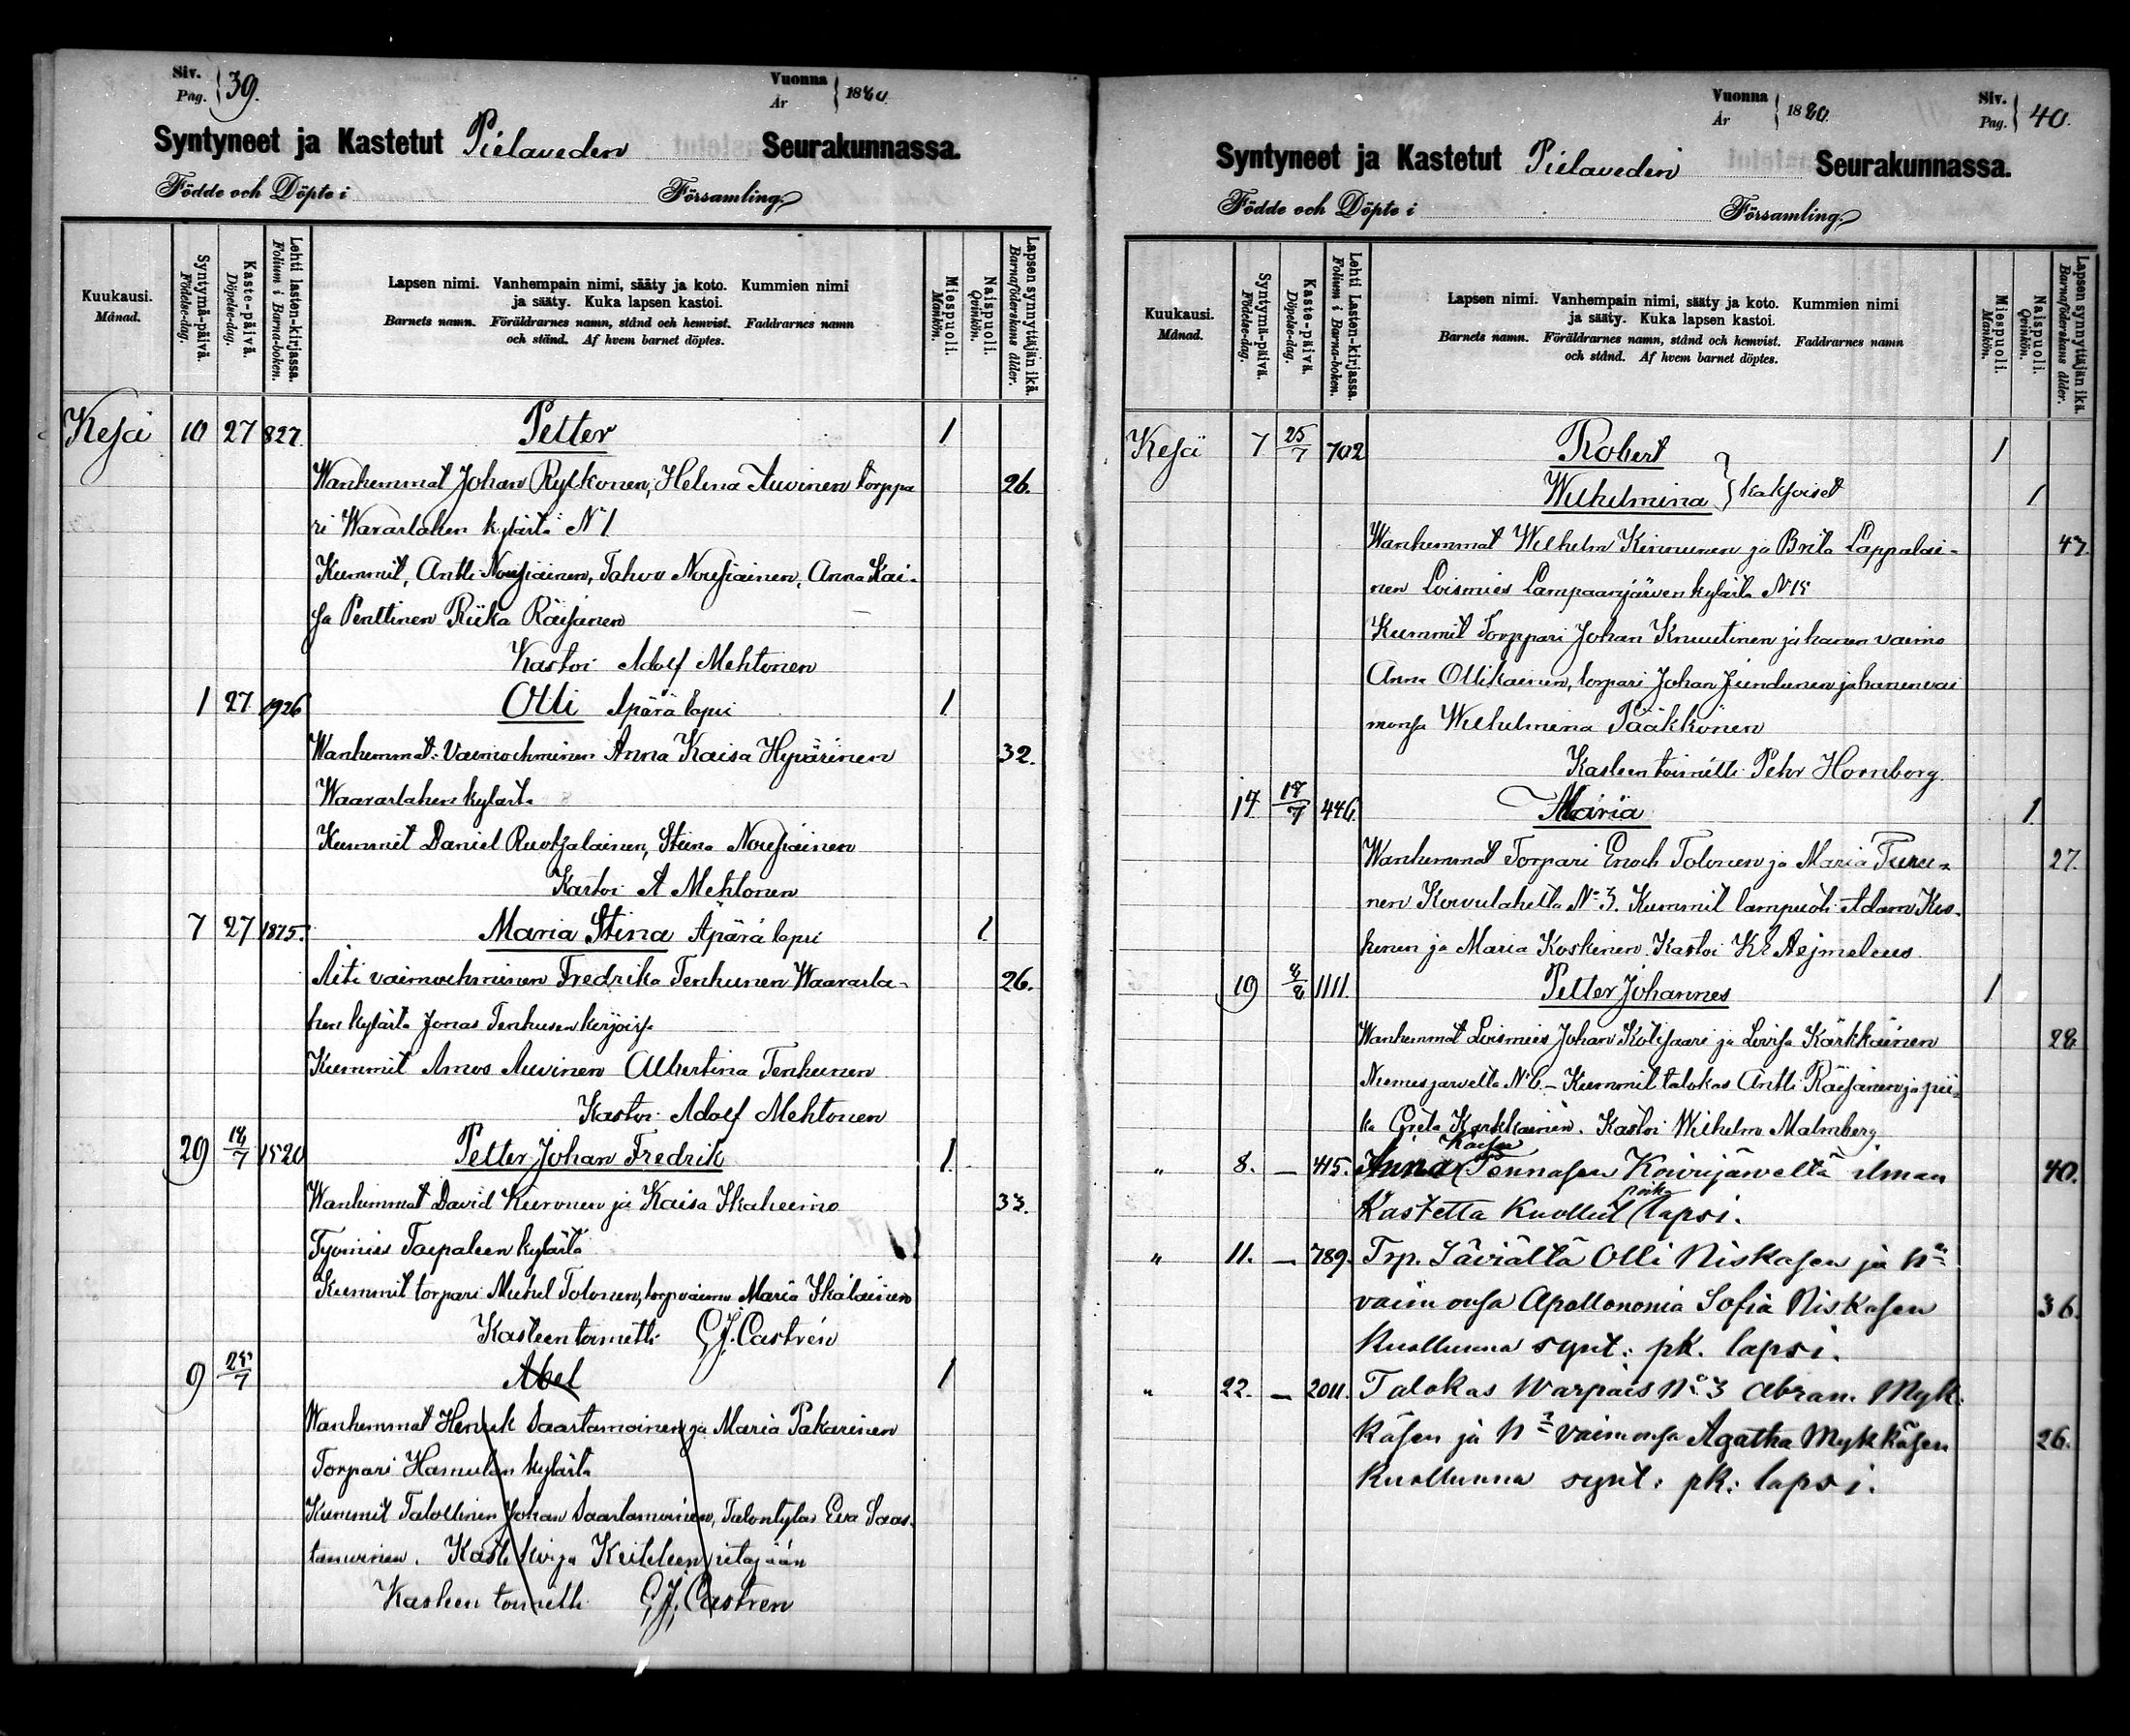 Siv. Pag. 39.
Vuonna År 1880.
Syntyneet ja Kastetut Pielaveden Seurakunnassa.
Födde och Döpte i Församling.
Kuukausi. Månad.
Syntymä-päivä. Födelse-dag.
Kaste-päivä. Döpelse-dag.
Lehti lasten-kirjassa. Folium i Barna-boken.
Lapsen nimi. Vanhempain nimi, sääty ja koto. Kummien nimi
ja sääty. Kuka lapsen kastoi.
Barnets namn. Föräldrarnes namn, stånd och hemvist. Faddrarnes namn
och stånd. Af hvem barnet döptes.
Miespuoli. Mankön.
Naispuoli. Qvinkön.
Lapsen synnyttäjän ikä. Barnaföderskans ålder.
Kesä 10 27 827. Petter 1
Wanhemmat Johan Rytkonen, Helena Auvinen torppa 26.
ri Wavarlahen kylästä N 1
Kummit, Antti Nousiainen, Tahvo Nousiainen, Anna Kai-
sa Penttinen Riika Räisänen
Kastoi Adolf Mehtonen
1 27. 1926 Olli Äpärä lapsi 1.
Wanhemmat. Vaimoehminen Anna Kaisa Hyvärinen 32.
Waavarlahen kylästä
Kummit Daniel Ruotsalainen, Stina Nousiainen
Kastoi A Mehtonen
7 27 1875. Maria Stina Äpärä lapsi 1.
Äiti vaimoehminen Fredrika Tenhunen Waavarla- 26.
hen kylästä Jonas Tenhusen kirjoissa
Kummit Amos Auvinen Albertina Tenhunen
Kastoi Adolf Mehtonen
29 18/7 1520 Petter Johan Fredrik 1.
Wanhemmat David Kiuronen ja Kaisa Ikäheimo 33.
Työmies Taipaleen kylästä
Kummit torpari Mikel Tolonen, torp vaimo Maria Ikäläinen
Kasteen toimitti G.J. Castrén
9 25/7 Abel 1
Wanhemmat Henrik Saastamoinen ja Maria Pakarinen
Torpari Hamulan kylästä
Kummit Talollinen Johan Saastamoinen, Talontytär Eva Saas-
tamoinen. Kaste kirja Keiteleen
Kasteen toimitti G.J. Castren
Vuonna År 1880.
Siv. Pag. 40.
Syntyneet ja Kastetut Pielaveden Seurakunnassa.
Födde och Döpte i Församling.
Kuukausi. Månad.
Syntymä-päivä. Födelse-dag.
Kaste-päivä. Döpelse-dag.
Lehti Lasten-kirjassa. Folium i Barna-boken.
Lapsen nimi. Vanhempain nimi, sääty ja koto. Kummien nimi
ja sääty. Kuka lapsen kastoi.
Barnets namn. Föräldrarnes namn, stånd och hemvist. Faddrarnes namn
och stånd. Af hvem barnet döptes.
Miespuoli. Mankön.
Naispuoli. Qvinkön.
Lapsen synnyttäjän ikä. Barnaföderskans ålder.
Kesä 7 25/7 702 Robert 1
Wilhelmina } kaksoiset 1
Wanhemmat Wilhelm Kinnunen ja Brita Lappalai- 47.
nen Loismies Lampaanjärven kylästä N 15
Kummit Torppari Johan Knuutinen ja hänen vaimo
Anna Ollikainen, torpari Johan Jundunen ja hänen vai
monsa Wilhelmina Pääkkönen
Kasteen toimitti Pehr Hornborg.
17. 18/7 446. Maria 1.
Wanhemmat Torpari Enoch Tolonen ja Maria Turu- 27.
nen Koivulahelta No 3. Kummit lampuoti Adam Kos-
kinen ja Maria Koskinen. Kastoi K E Aejmeleus.
19 8/8 1111. Petter Johannes 1
Wanhemmat Loismies Johan Kotisaari ja Lovisa Kärkkäinen 28
Niemisjärveltä N 6. – Kummit talokas Antti Räisänen ja pii-
ka Greta Kärkkäinen. Kastoi Wilhelm Malmberg.
" 8. – 415. Anna Kaisa Tennosen Koivujärveltä ilman 40.
Kastetta Kuollut poika lapsi.
" 11. – 789. Trp. Säviältä Olli Niskasen ja hn
vaimonsa Apollononia Sofia Niskasen 36.
Kuolluna synt: pk. lapsi.
" 22. – 2011. Talokas Warpais No 3 Abram Myk-
käsen ja hn vaimonsa Agatha Mykkäsen 26.
Kuolluna synt: pk: lapsi.